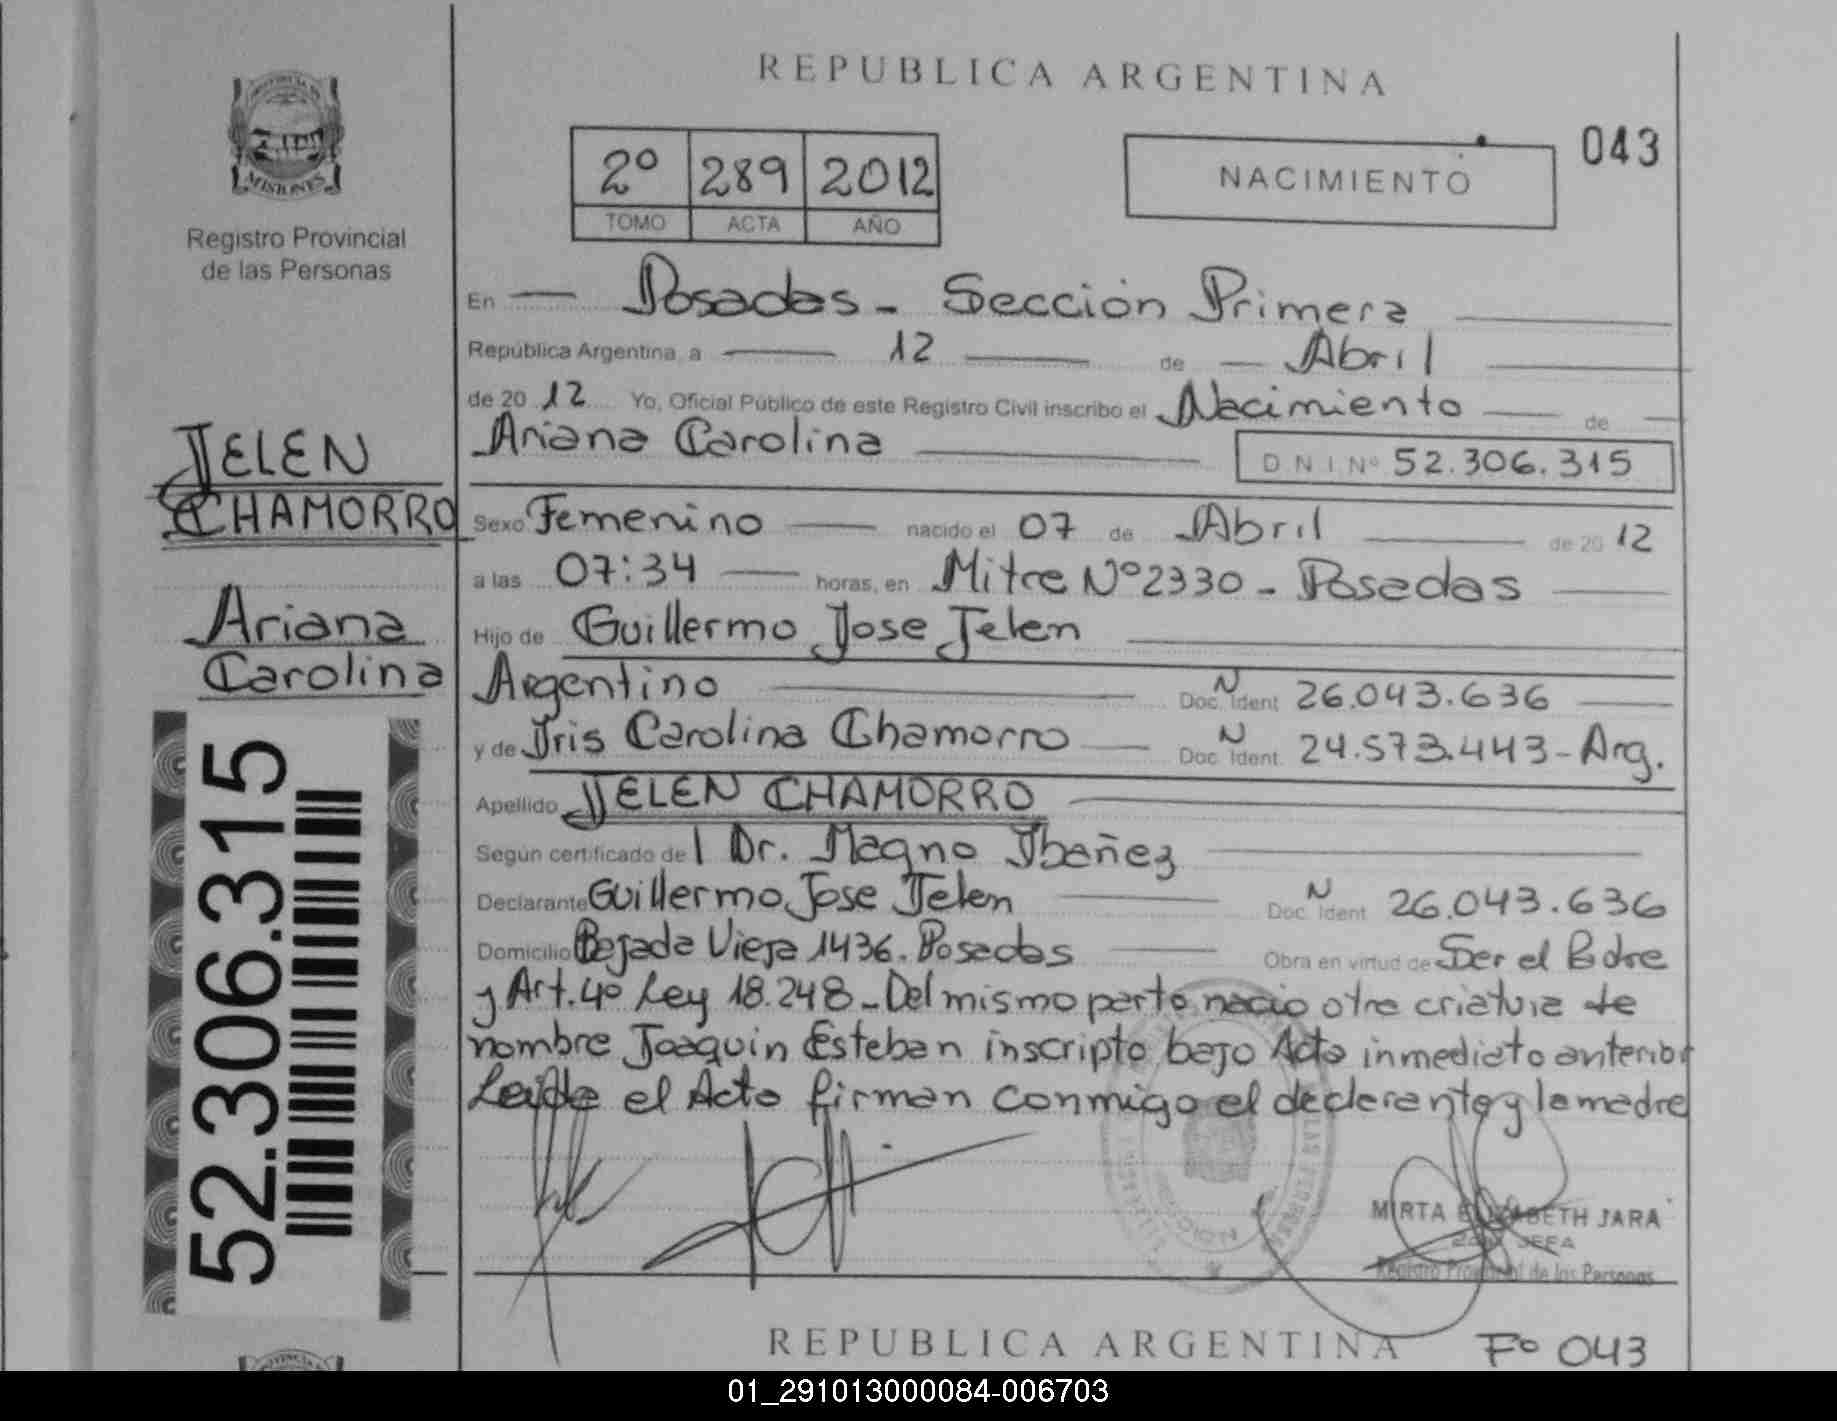 REPUBLICA ARGENTINA
MISIONES
Registro Provincial
de las Personas
2º 289 2012
TOMO ACTA AÑO
NACIMIENTO
043
En Posadas - Sección Primera
República Argentina, a 12 de Abril
de 20 12 Yo, Oficial Público de este Registro Civil inscribo el Nacimiento de
Ariana Carolina D N I Nº 52.306.315
JELEN
CHAMORRO
Ariana
Carolina
52.306.315
Sexo Femenino nacido el 07 de Abril de 20 12
a las 07:34 horas, en Mitre Nº 2330 - Posadas
Hijo de Guillermo Jose Jelen
Argentino Doc. Ident. N 26.043.636
y de Iris Carolina Chamorro Doc. Ident. N 24.573.443 - Arg.
Apellido JELEN CHAMORRO
Según certificado del Dr. Magno Ibañez
Declarante Guillermo Jose Jelen Doc. Ident. N 26.043.636
Domicilio Bajada Vieja 1436. Posadas Obra en virtud de Ser el Padre
y Art. 4º Ley 18.248 - Del mismo parto nacio otra criatura de
nombre Joaquin Esteban inscripto bajo Acta inmediato anterior
Leida el Acta firman conmigo el declarante y la madre
MIRTA ELIZABETH JARA
JEFA
Registro Provincial de las Personas
REPUBLICA ARGENTINA Fº 043
01_291013000084-006703